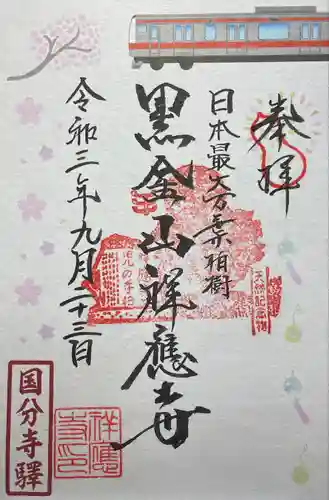 奉拝
日本最大万葉植樹
黒金山祥應寺
令和三年九月二十三日
天然記念物
国分寺驛
祥應
寺印